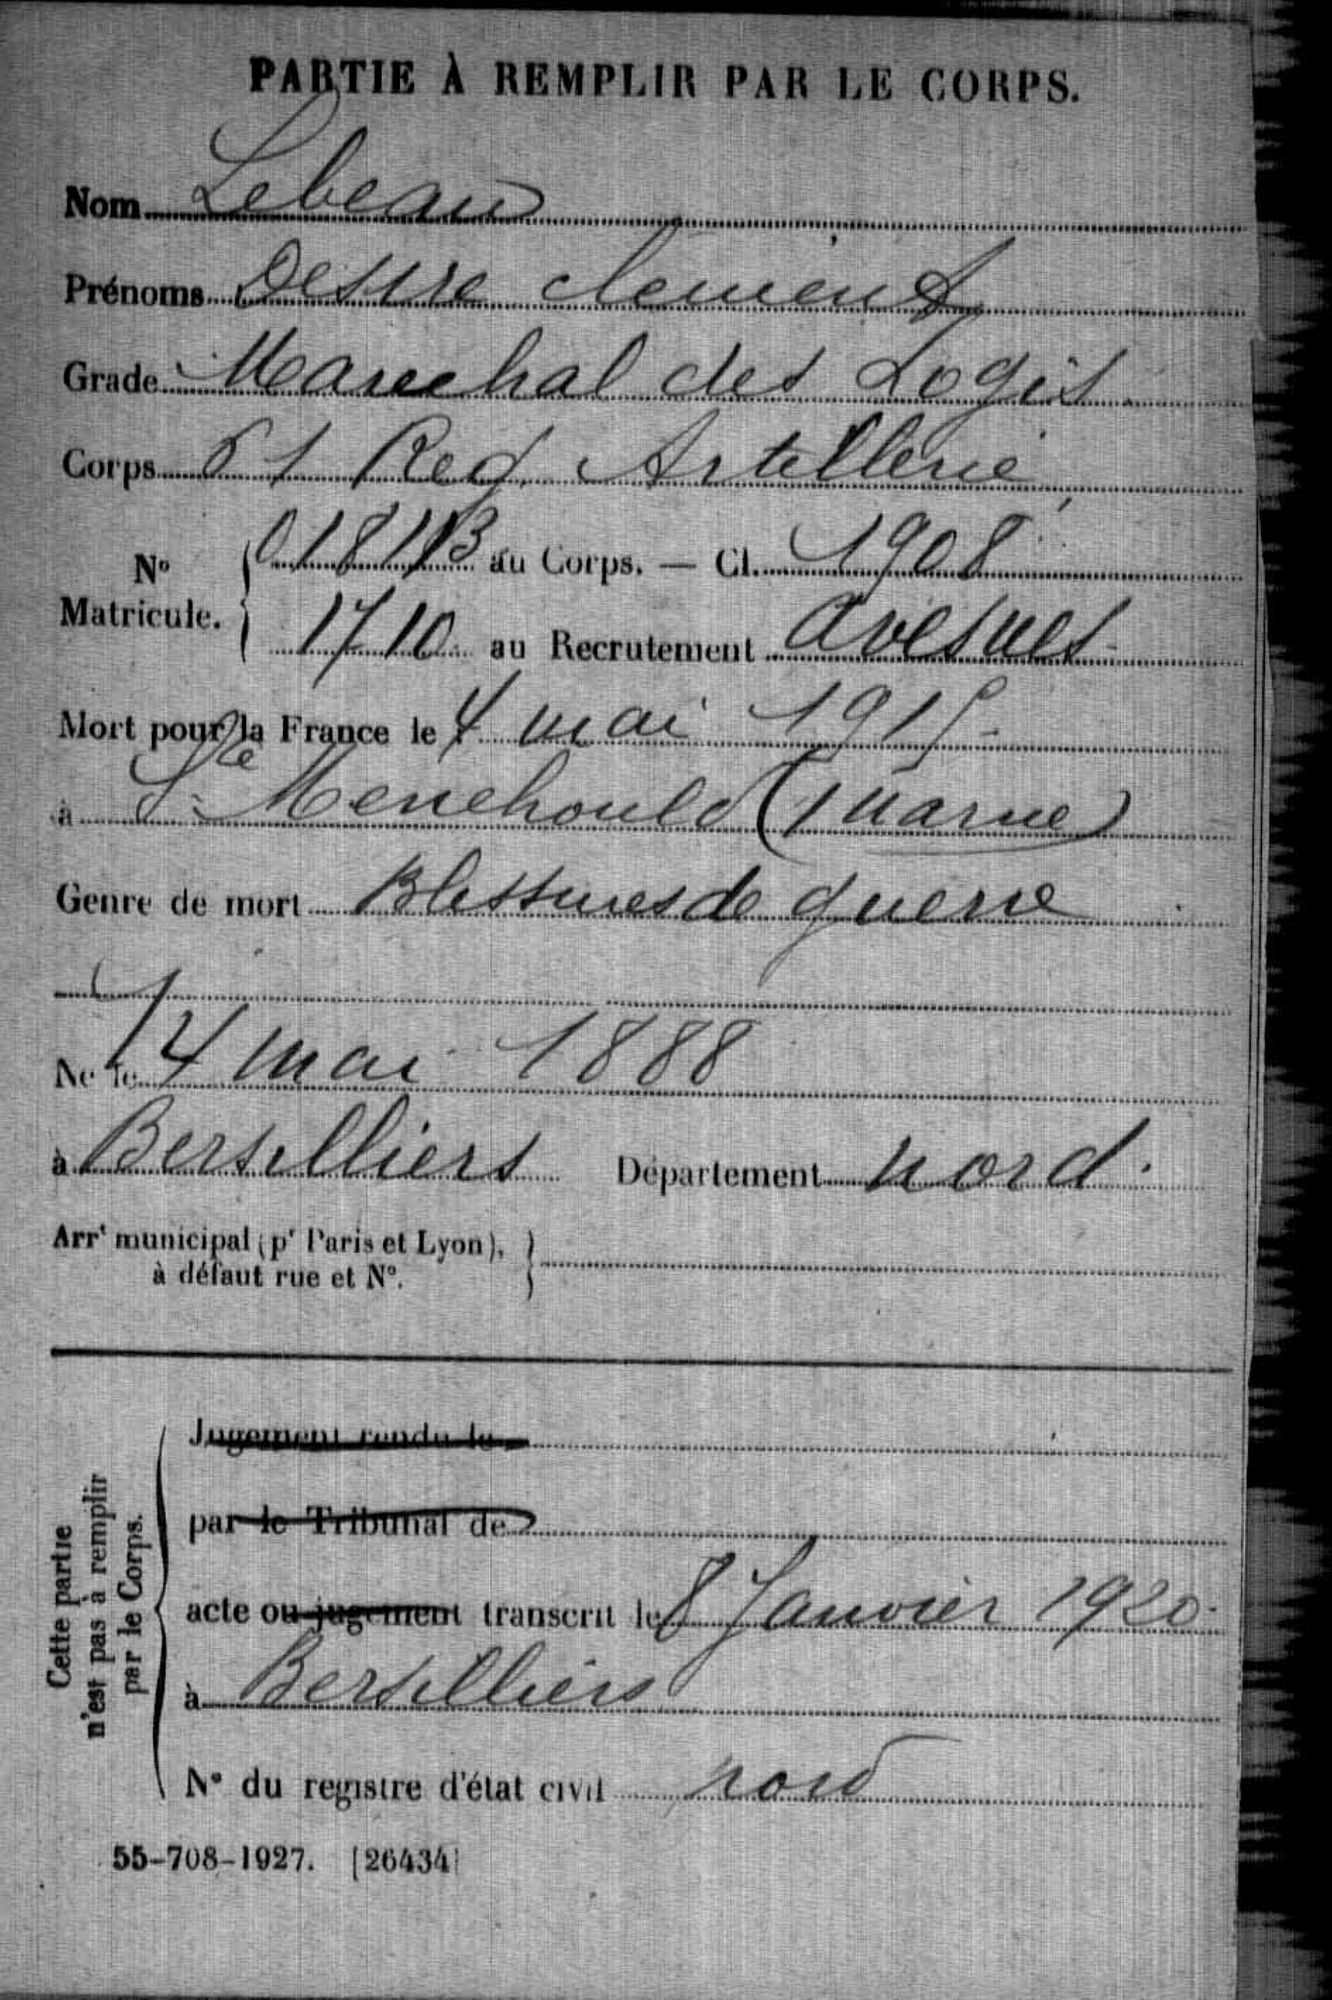 PARTIE À REMPLIR PAR LE CORPS.
Nom Lebeau
Prénoms Desire clement
Grade Marechal des Logis
Corps 61 Reg Artillerie
N° Matricule. { 01811B au Corps. — Cl. 1908
1710 au Recrutement Avesnes
Mort pour la France le 4 mai 1915
à Ste Menehould (Marne)
Genre de mort Blessures de guerre
Né le 14 mai 1888
à Bersilliers Département Nord.
Arrt municipal (pr Paris et Lyon), }
à défaut rue et N°.
Cette partie
n'est pas à remplir
par le Corps.
Jugement rendu le
par le Tribunal de
acte ou jugement transcrit le 8 Janvier 1920.
à Bersilliers
N° du registre d'état civil nord
55-708-1927. [26434]